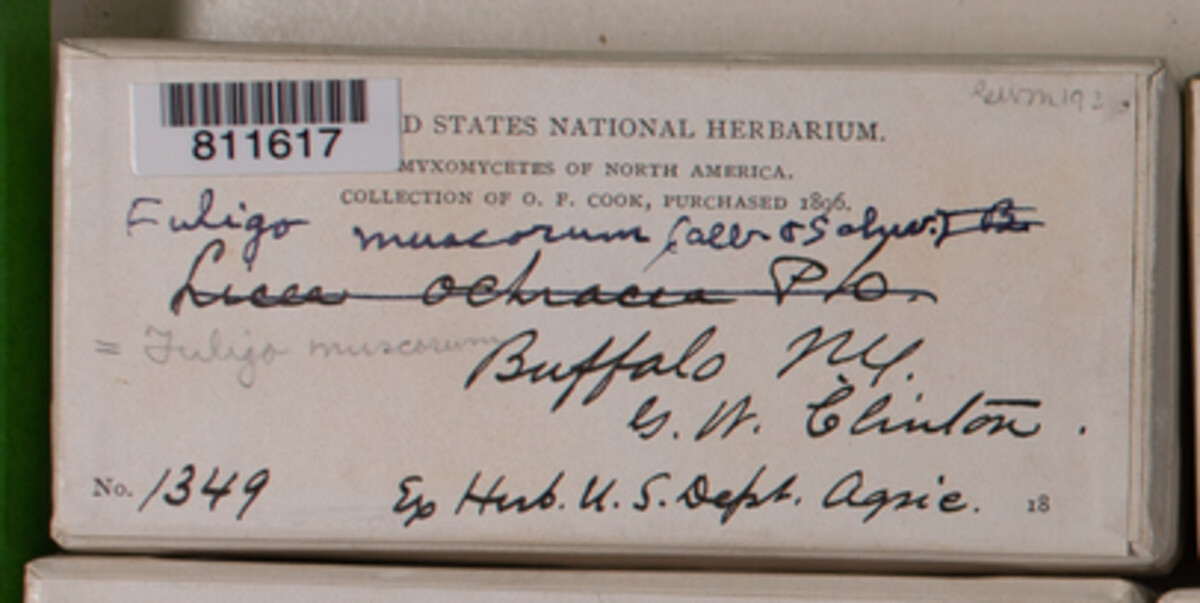 811617
D STATES NATIONAL HERBARIUM.
MYXOMYCETES OF NORTH AMERICA.
COLLECTION OF O. F. COOK, PURCHASED 1896.
Fuligo muscorum (Alb. & Schw.)
Licea ochracea Pk.
= Fuligo muscorum
Buffalo N.Y.
G. W. Clinton.
No. 1349 Ex Herb. U. S. Dept. Agric. 18